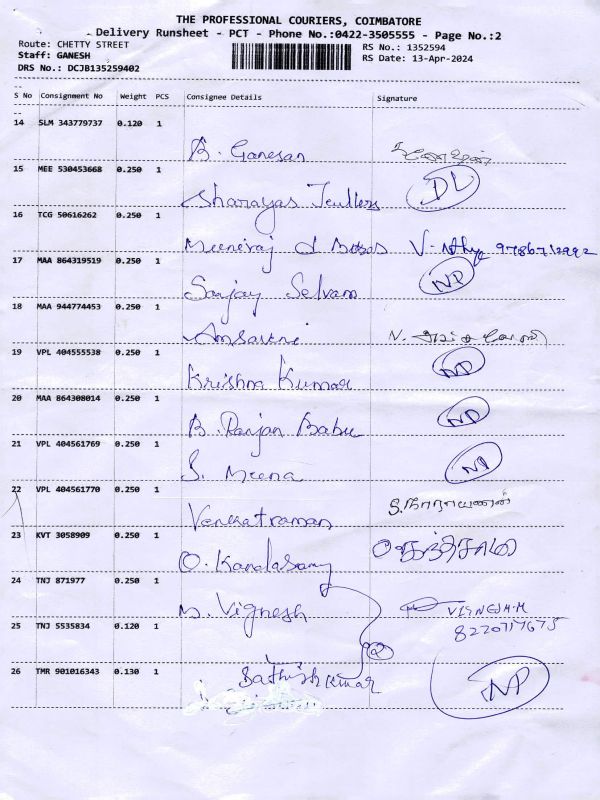 THE PROFESSIONAL COURIERS, COIMBATORE
Delivery Runsheet - PCT - Phone No.:0422-3505555 - Page No.:2
Route: CHETTY STREET RS No.: 1352594
Staff: GANESH RS Date: 13-Apr-2024
DRS No.: DCJB135259402
S No Consignment No Weight PCS Consignee Details Signature
14 SLM 343779737 0.120 1
B. Ganesan
15 MEE 530453668 0.250 1
DL
16 TCG 50616262 0.250 1
V. 9786712992
17 MAA 864319519 0.250 1
Sanjay Selvam NP
18 MAA 944774453 0.250 1
N.
19 VPL 404555538 0.250 1
Krishna Kumar NP
20 MAA 864308014 0.250 1
B. Ranjan Babu NP
21 VPL 404561769 0.250 1
S. Meena NP
22 VPL 404561770 0.250 1
Venkatraman S. நாராயணன்
23 KVT 3058909 0.250 1
O. Kandasamy கந்தசாமி
24 TNJ 871977 0.250 1
M. Vignesh VIGNESH.M
25 TNJ 5535834 0.120 1
8220717675
2
26 TMR 901016343 0.130 1
Sathishkumar NP